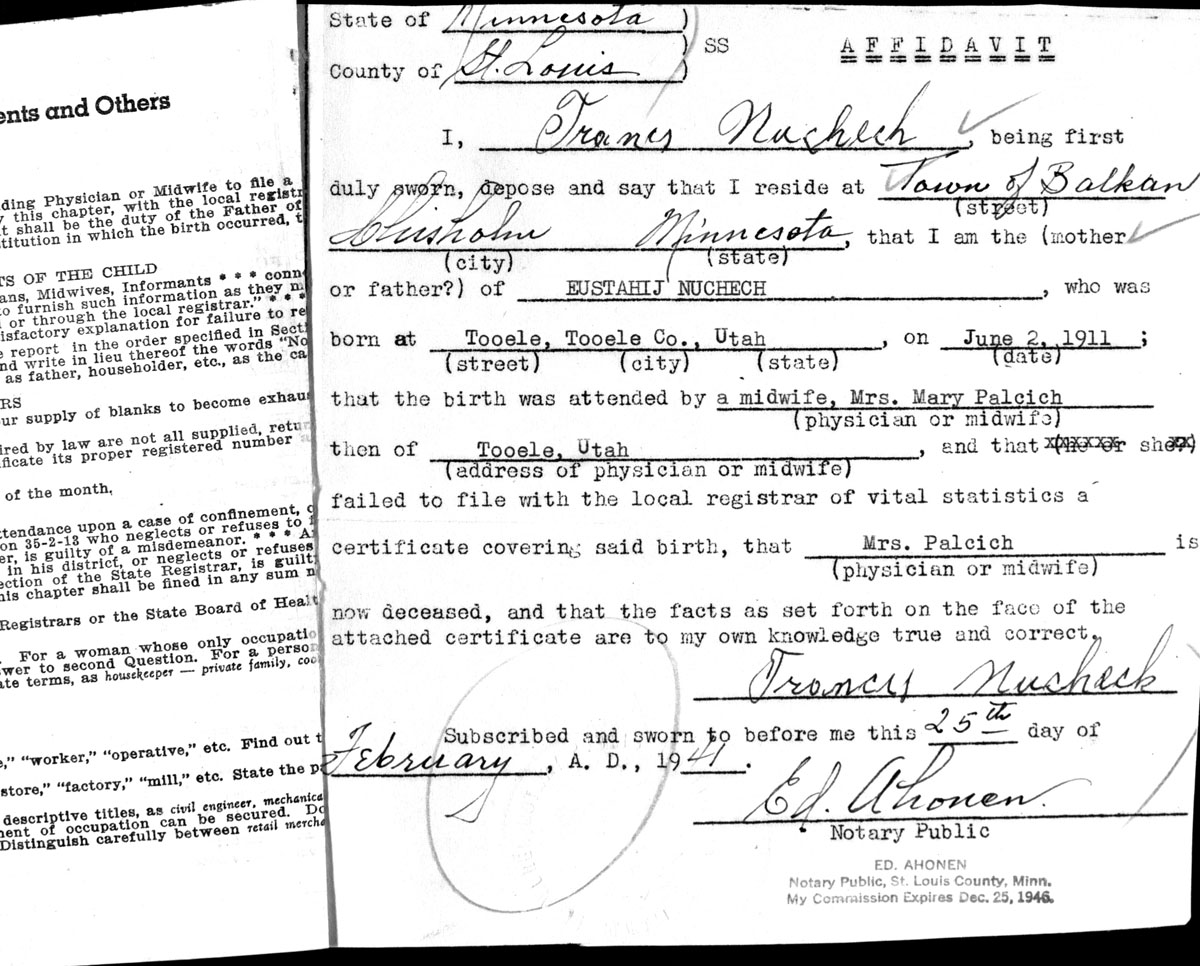 ents and Others
ding Physician or Midwife to file a
y this chapter, with the local registr
t shall be the duty of the Father of
stitution in which the birth occurred, t
TS OF THE CHILD
ans, Midwives, Informants * * * conn
to furnish such information as they m
l or through the local registrar." * * *
tisfactory explanation for failure to re
e report in the order specified in Secti
nd write in lieu thereof the words "No
as father, householder, etc., as the ca
RS
our supply of blanks to become exhaus
ired by law are not all supplied, retur
ificate its proper registered number
of the month,
ttendance upon a case of confinement, o
on 35-2-13 who neglects or refuses to f
er, is guilty of a misdemeanor. * * * A
in his district, or neglects or refuses
ection of the State Registrar, is guilt
his chapter shall be fined in any sum n
Registrars or the State Board of Healt
. For a woman whose only occupatio
wer to second Question. For a person
ate terms, as housekeeper — private family, coo
e," "worker," "operative," etc. Find out t
store," "factory," "mill," etc. State the pa
descriptive titles, as civil engineer, mechanica
ment of occupation can be secured. Do
Distinguish carefully between retail mercha
State of Minnesota )
) SS AFFIDAVIT
County of St. Louis )
I, Francs Nuchech, being first
duly sworn, depose and say that I reside at Town of Balkan
(street)
Chisholm Minnesota, that I am the (mother
(city) (state)
or father?) of EUSTAHIJ NUCHECH, who was
born at Tooele, Tooele Co., Utah, on June 2, 1911;
(street) (city) (state) (date)
that the birth was attended by a midwife, Mrs. Mary Palcich
(physician or midwife)
then of Tooele, Utah, and that (he or she)
(address of physician or midwife)
failed to file with the local registrar of vital statistics a
certificate covering said birth, that Mrs. Palcich is
(physician or midwife)
now deceased, and that the facts as set forth on the face of the
attached certificate are to my own knowledge true and correct.
Francs Nucheck
Subscribed and sworn to before me this 25th day of
February, A. D., 1941.
Ed. Ahonen.
Notary Public
ED. AHONEN
Notary Public, St. Louis County, Minn.
My Commission Expires Dec. 25, 1946.